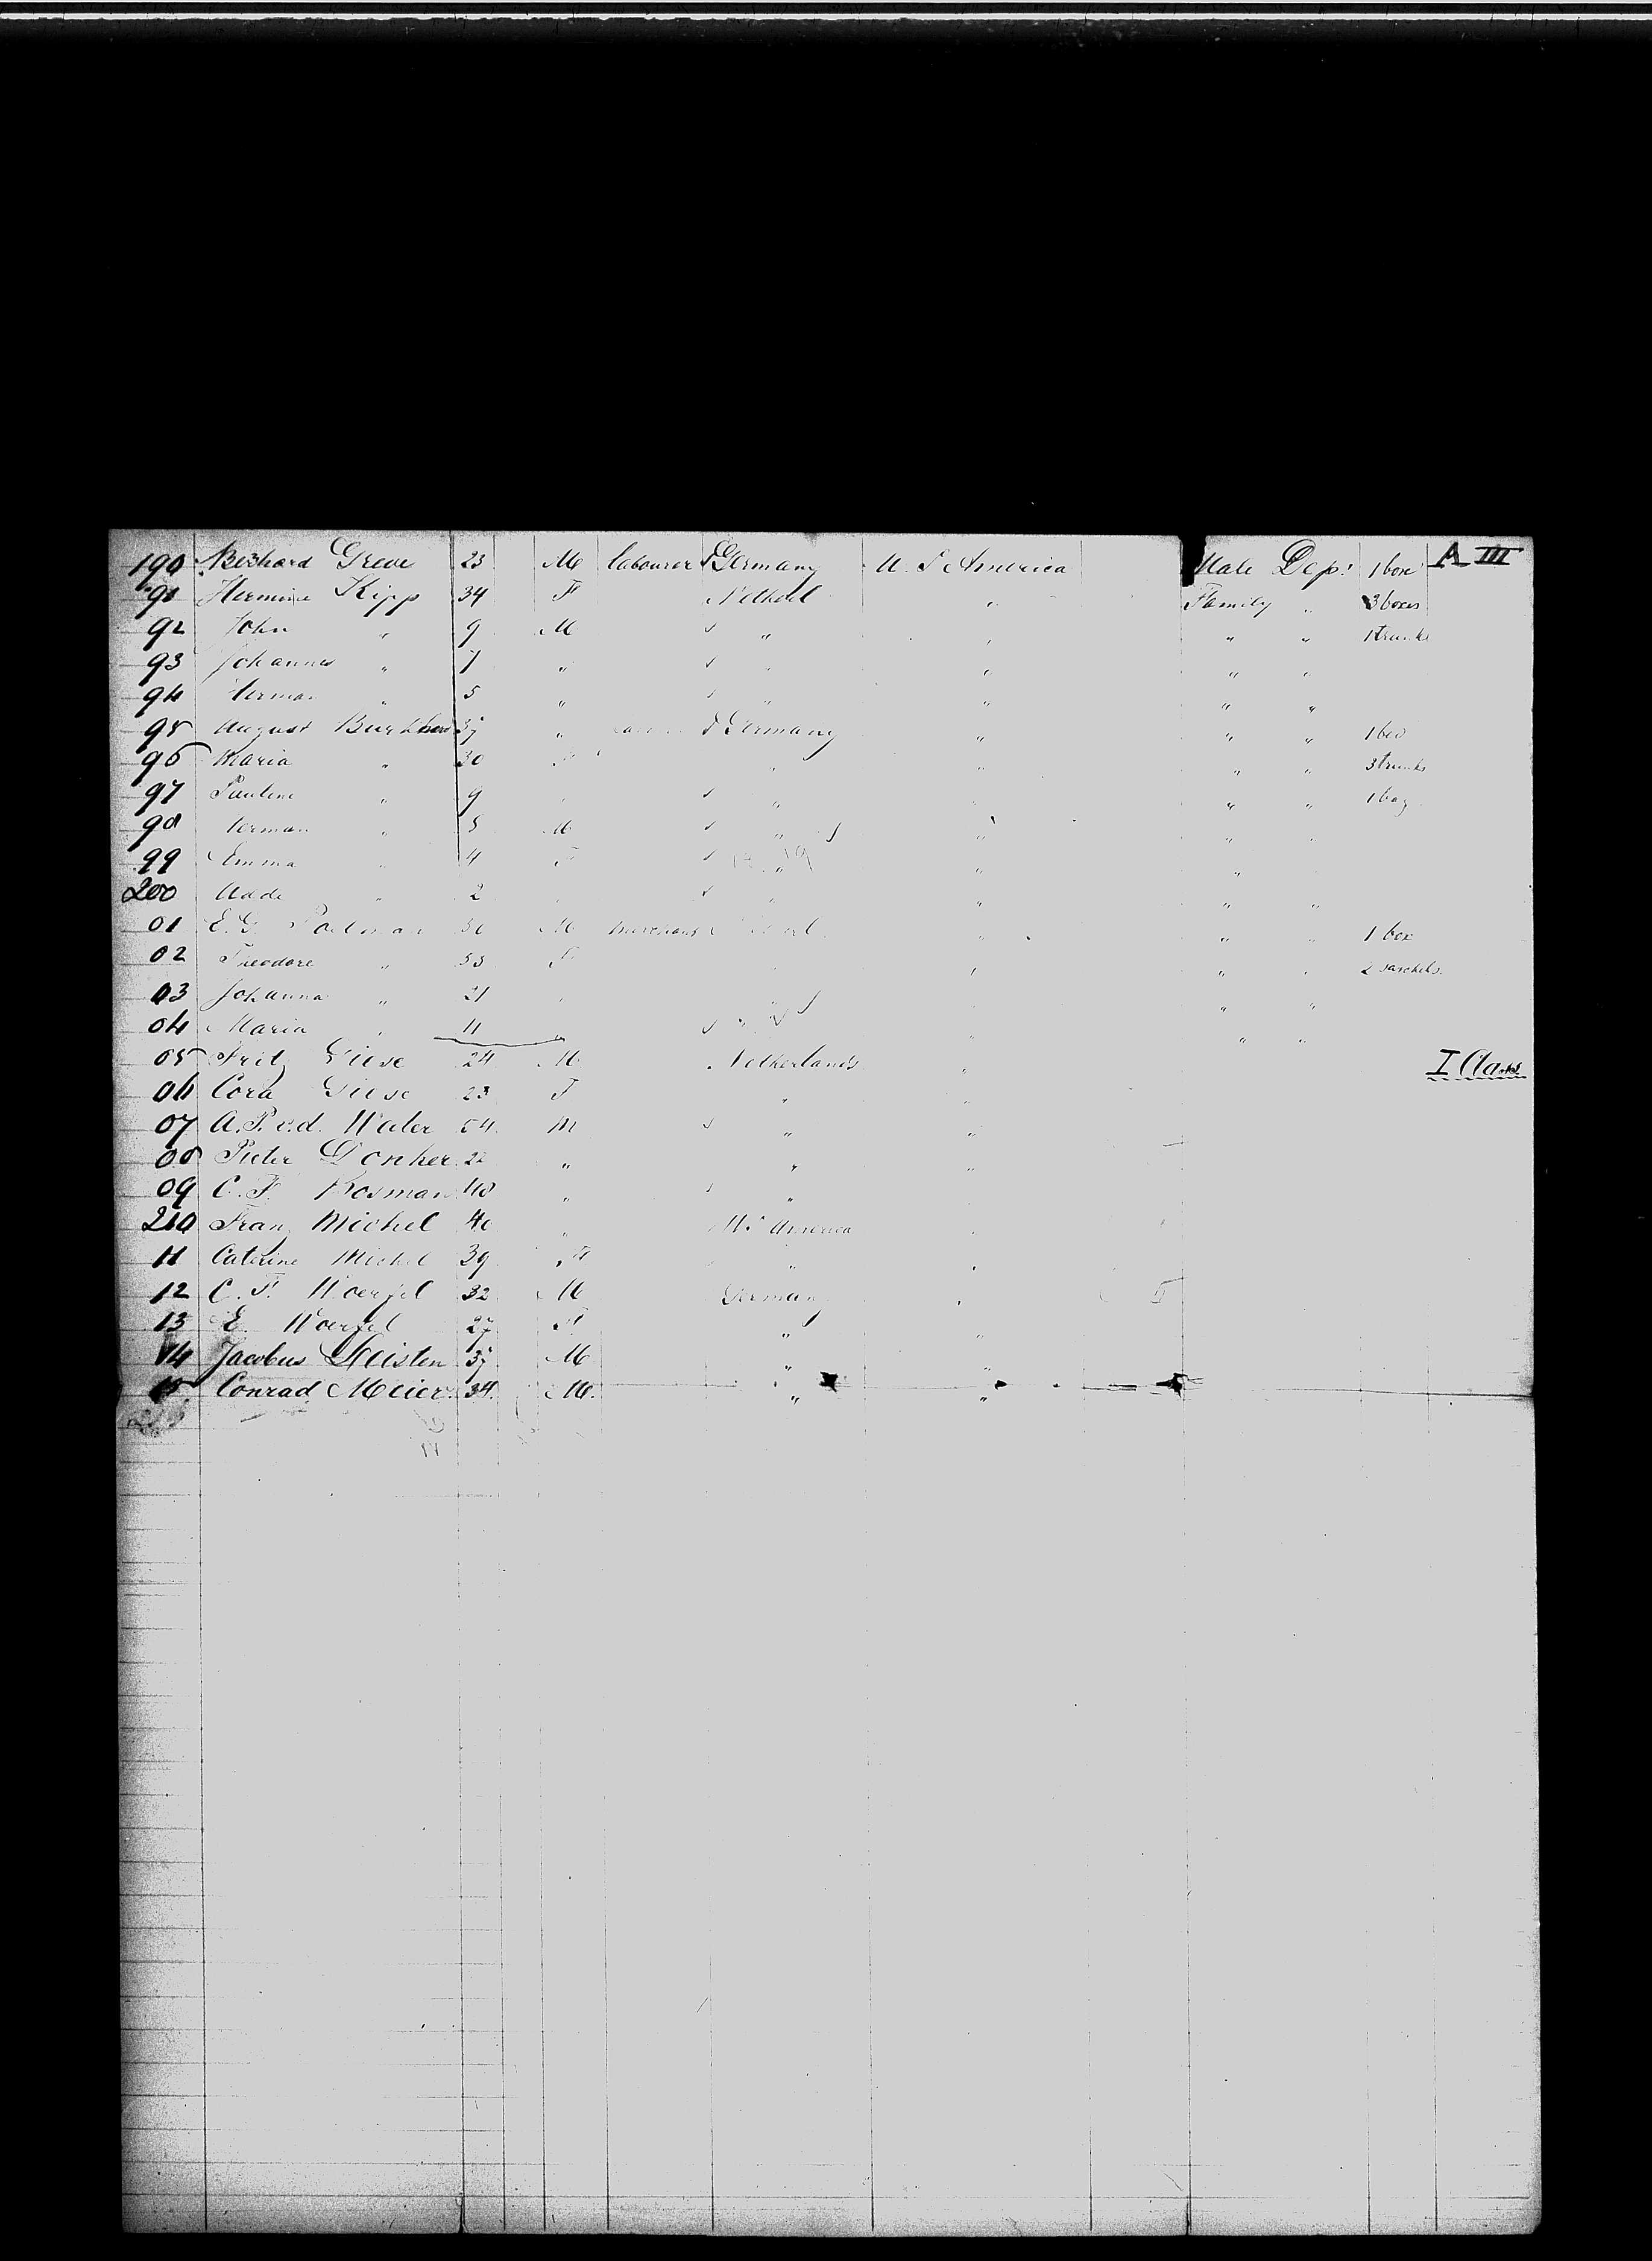 190 Greve 23 M labourer Germany U. S America Male Dep! 1 box A III
91 Hermine Kipp 34 F Netherl " Family " 3 boxes
92 John " 9 M " " " " 1 trunk
93 Johannes " 7 " " " " "
94 Herman " 5 " " " " "
95 August 37 " Germany " " " 1 bed
96 Maria " 30 F " " " " 3 trunks
97 Pauline " 9 " " " " " 1 bag
98 Herman " 5 M " " " "
99 Emma " 4 F " " "
200 " 2 " " " " "
01 E. G. M merchant " " " 1 box
02 Theodore " 53 F " " " 2
03 Johanna " 21 " " " " "
04 Maria " 11 " " " "
05 Fritz Giese 24 M Netherlands " I Class
06 Cora Giese 23 F " "
07 A. P. v.d. Water 54 M " "
08 Pieter Donker 22 " " "
09 C. F. Bosman 48 " " "
210 Franz Michel 40 " America "
11 Caterine Michel 39 F " "
12 C. F. 32 M Germany "
13 E. 27 F " "
14 Jacobus 37 M " "
15 Conrad Meier 34 M. " "